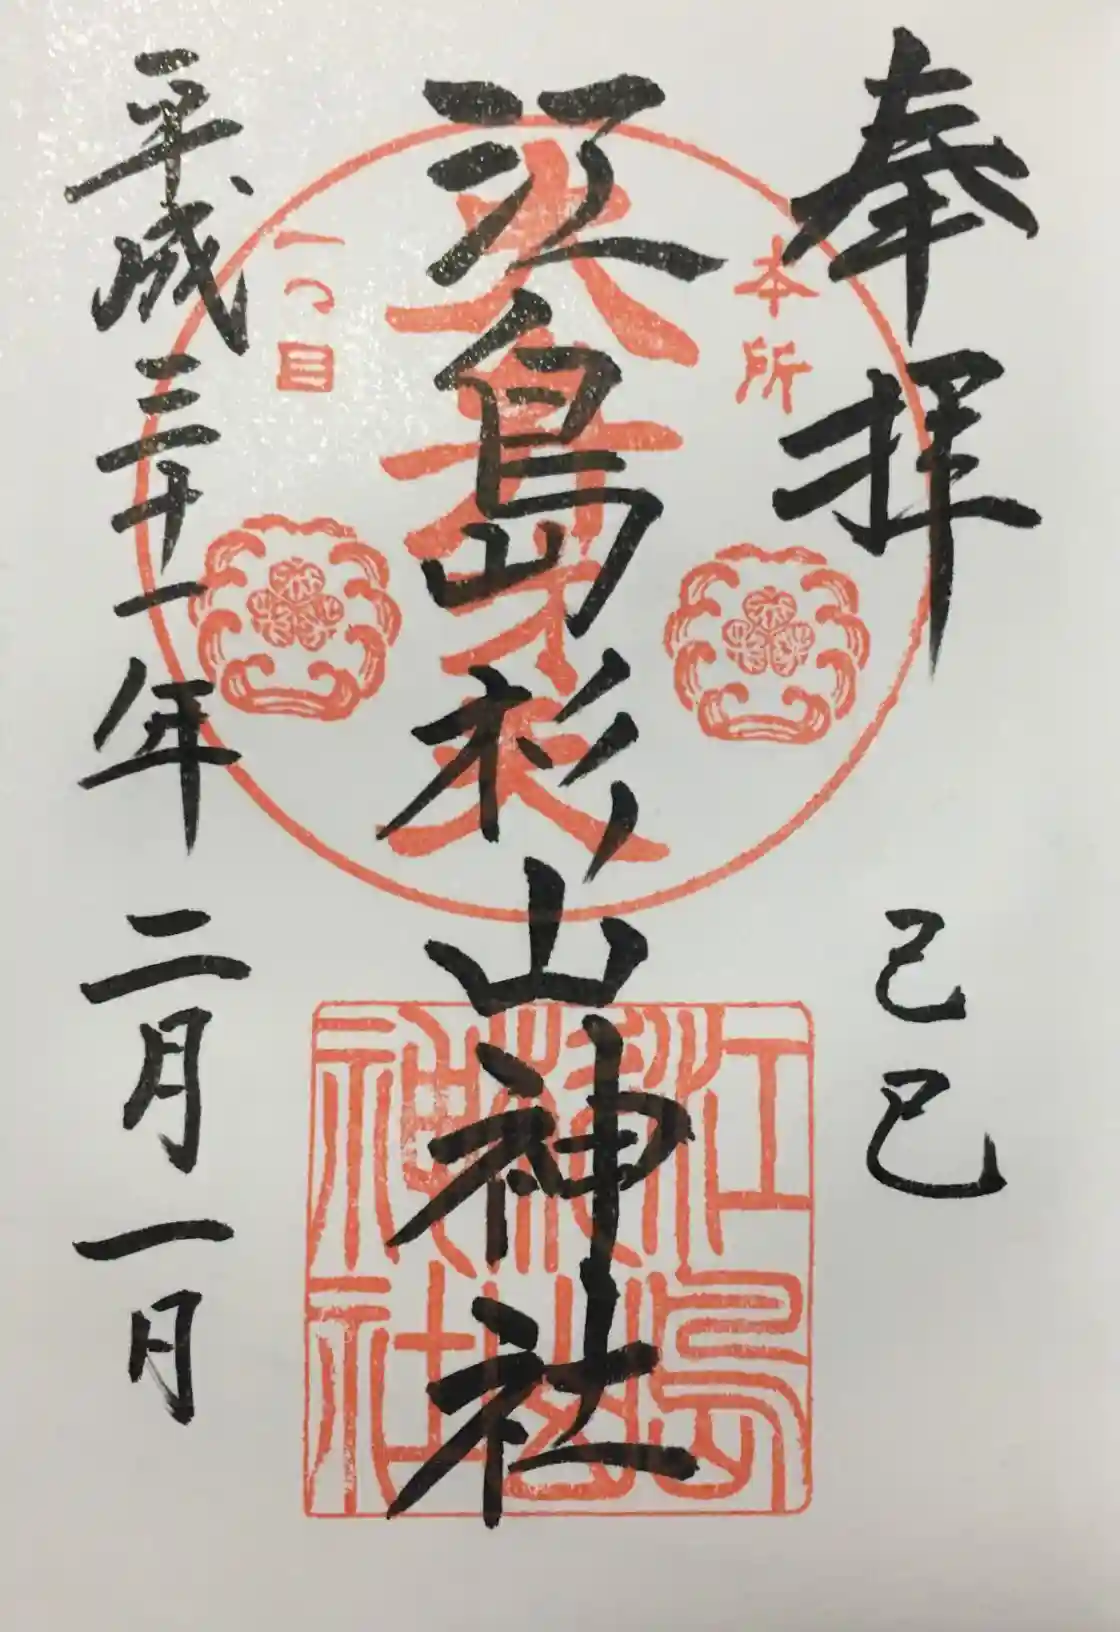 奉拝
己巳
江島杉山神社
平成三十一年 二月一日
本所
一つ目
美才天
江島
杉山
神社